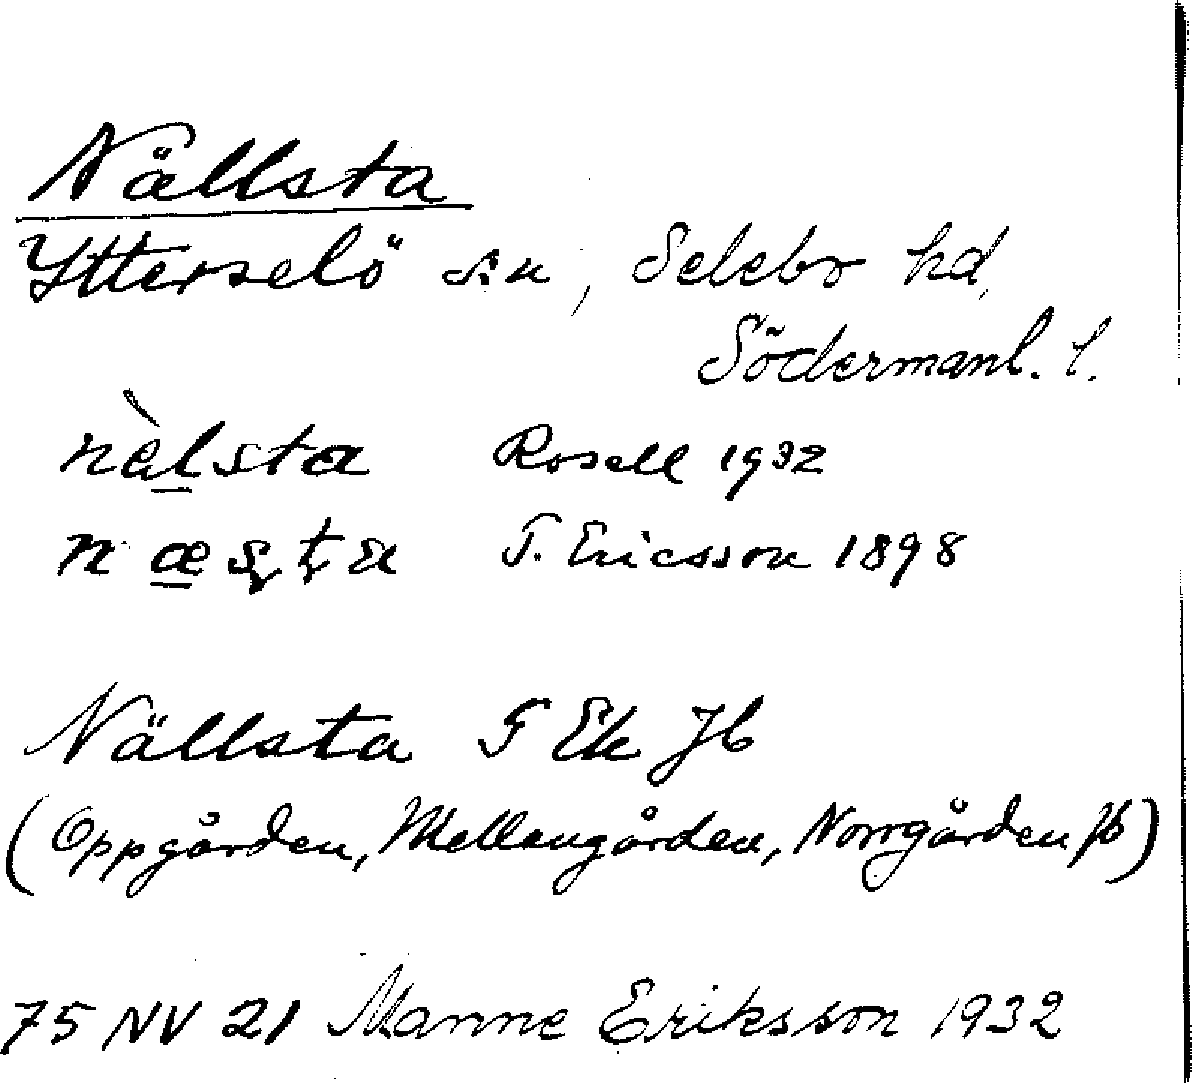 Nällsta
Ytterselö sn, Selebo hd,
Södermanl. l.
nèlsta Rosell 1932
næʂʈa T. Ericsson 1898
Nällsta G Ek Jb
(Oppgården, Mellangården, Norrgården Jb)
75 NV 21 Manne Eriksson 1932